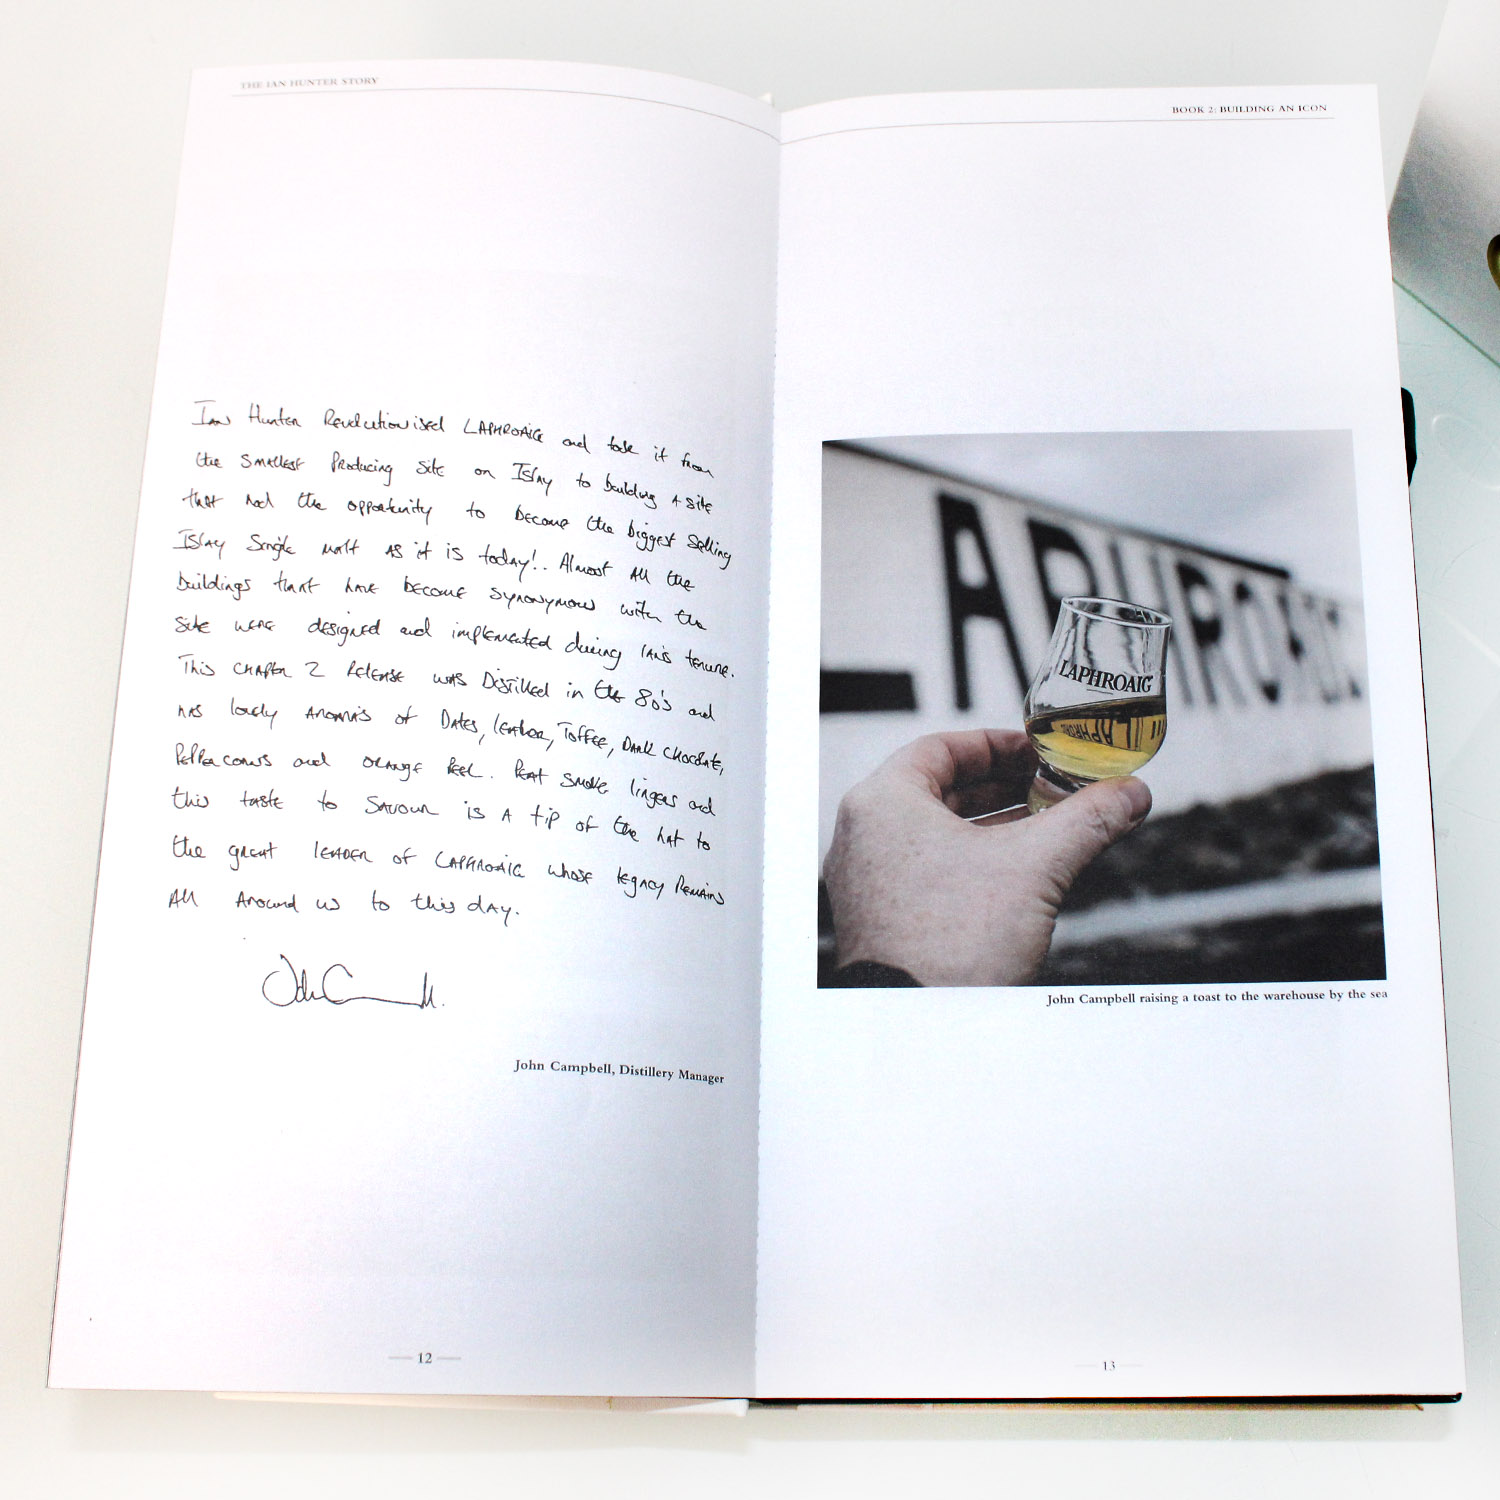 THE IAN HUNTER STORY
Ian Hunter Revolutionised LAPHROAIG and took it from
the smallest Producing site on Islay to building A site
that had the opportunity to become the biggest selling
Islay Single malt as it is today!. Almost All the
buildings that have become synonymous with the
site were designed and implemented during IAN's tenure.
This chapter 2 Release was Distilled in the 80's and
has lovely Aroma's of Dates, leather, Toffee, Dark chocolate,
Peppercorns and orange Peel. Peat smoke lingers and
this taste to savour is A tip of the hat to
the great leader of LAPHROAIG whose legacy Remains
All Around us to this day.
John Campbell, Distillery Manager
12
BOOK 2: BUILDING AN ICON
LAPHROAIG
LAPHROAIG
John Campbell raising a toast to the warehouse by the sea
13